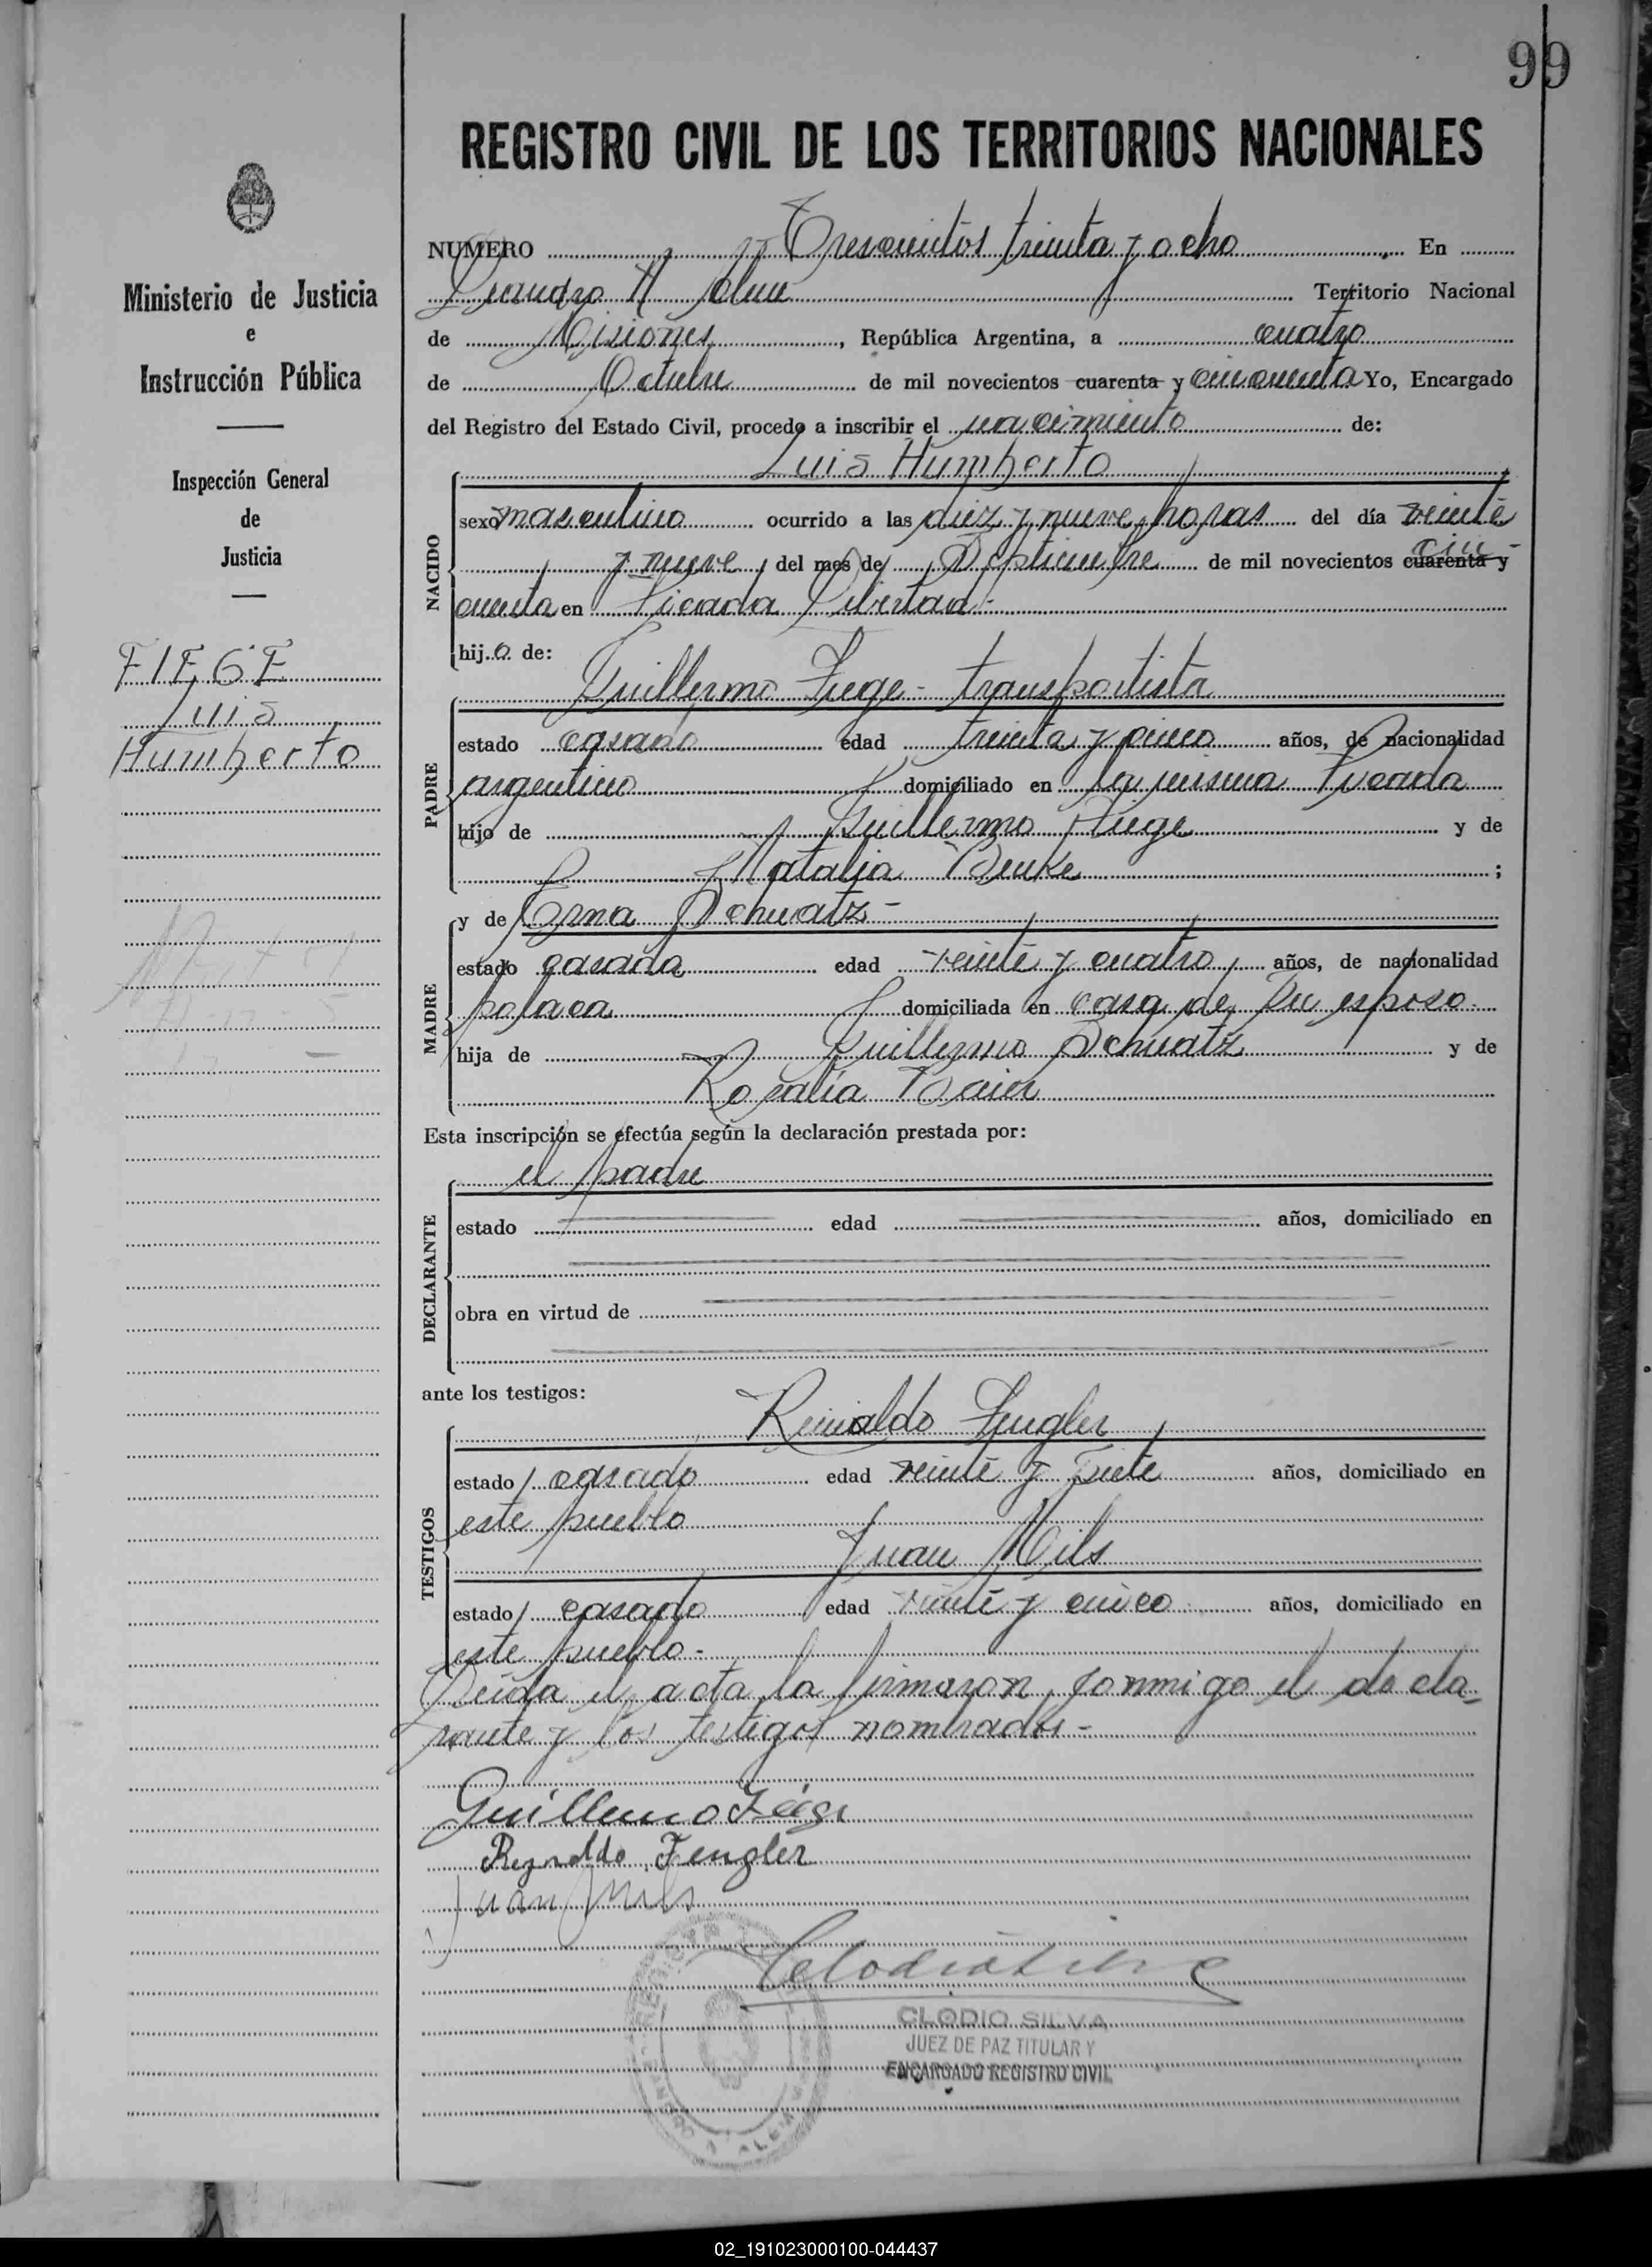 99
REGISTRO CIVIL DE LOS TERRITORIOS NACIONALES
NUMERO Trescientos treinta y ocho En
Leandro N Alem Territorio Nacional
de Misiones, República Argentina, a cuatro
de Octubre de mil novecientos cuarenta y cincuenta Yo, Encargado
del Registro del Estado Civil, procedo a inscribir el nacimiento de:
Luis Humberto
NACIDO
sexo masculino ocurrido a las diez y nueve horas del día veinte
y nueve del mes de Septiembre de mil novecientos cuarenta y cin-
cuenta en Picada Libertad-
hijo de:
Guillermo Fiege - transportista
PADRE
estado casado edad treinta y cinco años, de nacionalidad
argentino domiciliado en la misma Picada
hijo de Guillermo Fiege y de
Natalia Benke ;
MADRE
y de Erna Schwatz-
estado casada edad veinte y cuatro años, de nacionalidad
polaca domiciliada en casa de su esposo
hija de Guillermo Schwatz y de
Rosalía Baier
Esta inscripción se efectúa según la declaración prestada por:
el padre
DECLARANTE
estado edad años, domiciliado en
obra en virtud de
ante los testigos:
Reinaldo Fengler
TESTIGOS
estado casado edad veinte y siete años, domiciliado en
este pueblo
Juan Mils
estado casado edad veinte y cinco años, domiciliado en
este pueblo-
Leída el acta la firmaron conmigo el decla-
rante y los testigos nombrados-
Guillermo Feige
Reynoldo Fengler
Juan Mils
Clodio Silva
CLODIO SILVA
JUEZ DE PAZ TITULAR Y
ENCARGADO REGISTRO CIVIL
Ministerio de Justicia
e
Instrucción Pública
Inspección General
de
Justicia
FIEGE
Luis
Humberto
02_191023000100-044437